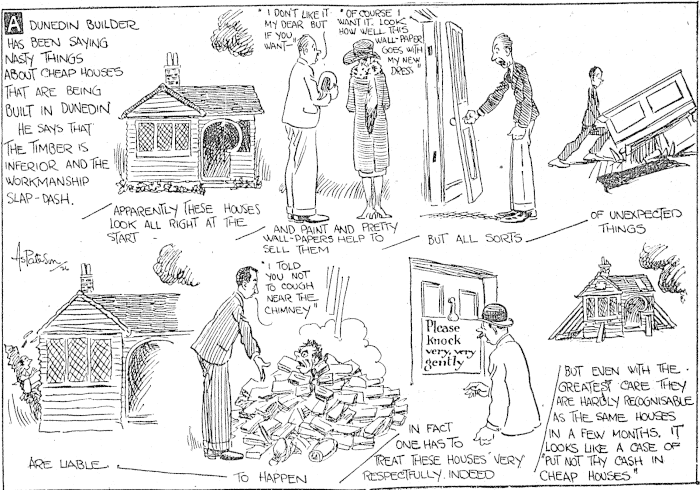 A DUNEDIN BUILDER
HAS BEEN SAYING
NASTY THINGS
ABOUT CHEAP HOUSES
THAT ARE BEING
BUILT IN DUNEDIN
HE SAYS THAT
THE TIMBER IS
INFERIOR AND THE
WORKMANSHIP
SLAP-DASH.
APPARENTLY THESE HOUSES
LOOK ALL RIGHT AT THE
START
"I DON'T LIKE IT
MY DEAR BUT
IF YOU
WANT-"
"OF COURSE I
WANT IT. LOOK
HOW WELL THIS
WALL-PAPER
GOES WITH
MY NEW
DRESS"
AND PAINT AND PRETTY
WALL-PAPERS HELP TO
SELL THEM
BUT ALL SORTS
OF UNEXPECTED
THINGS
ARE LIABLE
"I TOLD
YOU NOT
TO COUGH
NEAR THE
CHIMNEY"
TO HAPPEN
Please
knock
very, very
gently
IN FACT
ONE HAS TO
TREAT THESE HOUSES VERY
RESPECTFULLY INDEED
BUT EVEN WITH THE
GREATEST CARE THEY
ARE HARDLY RECOGNISABLE
AS THE SAME HOUSES
IN A FEW MONTHS. IT
LOOKS LIKE A CASE OF
"PUT NOT THY CASH IN
CHEAP HOUSES"